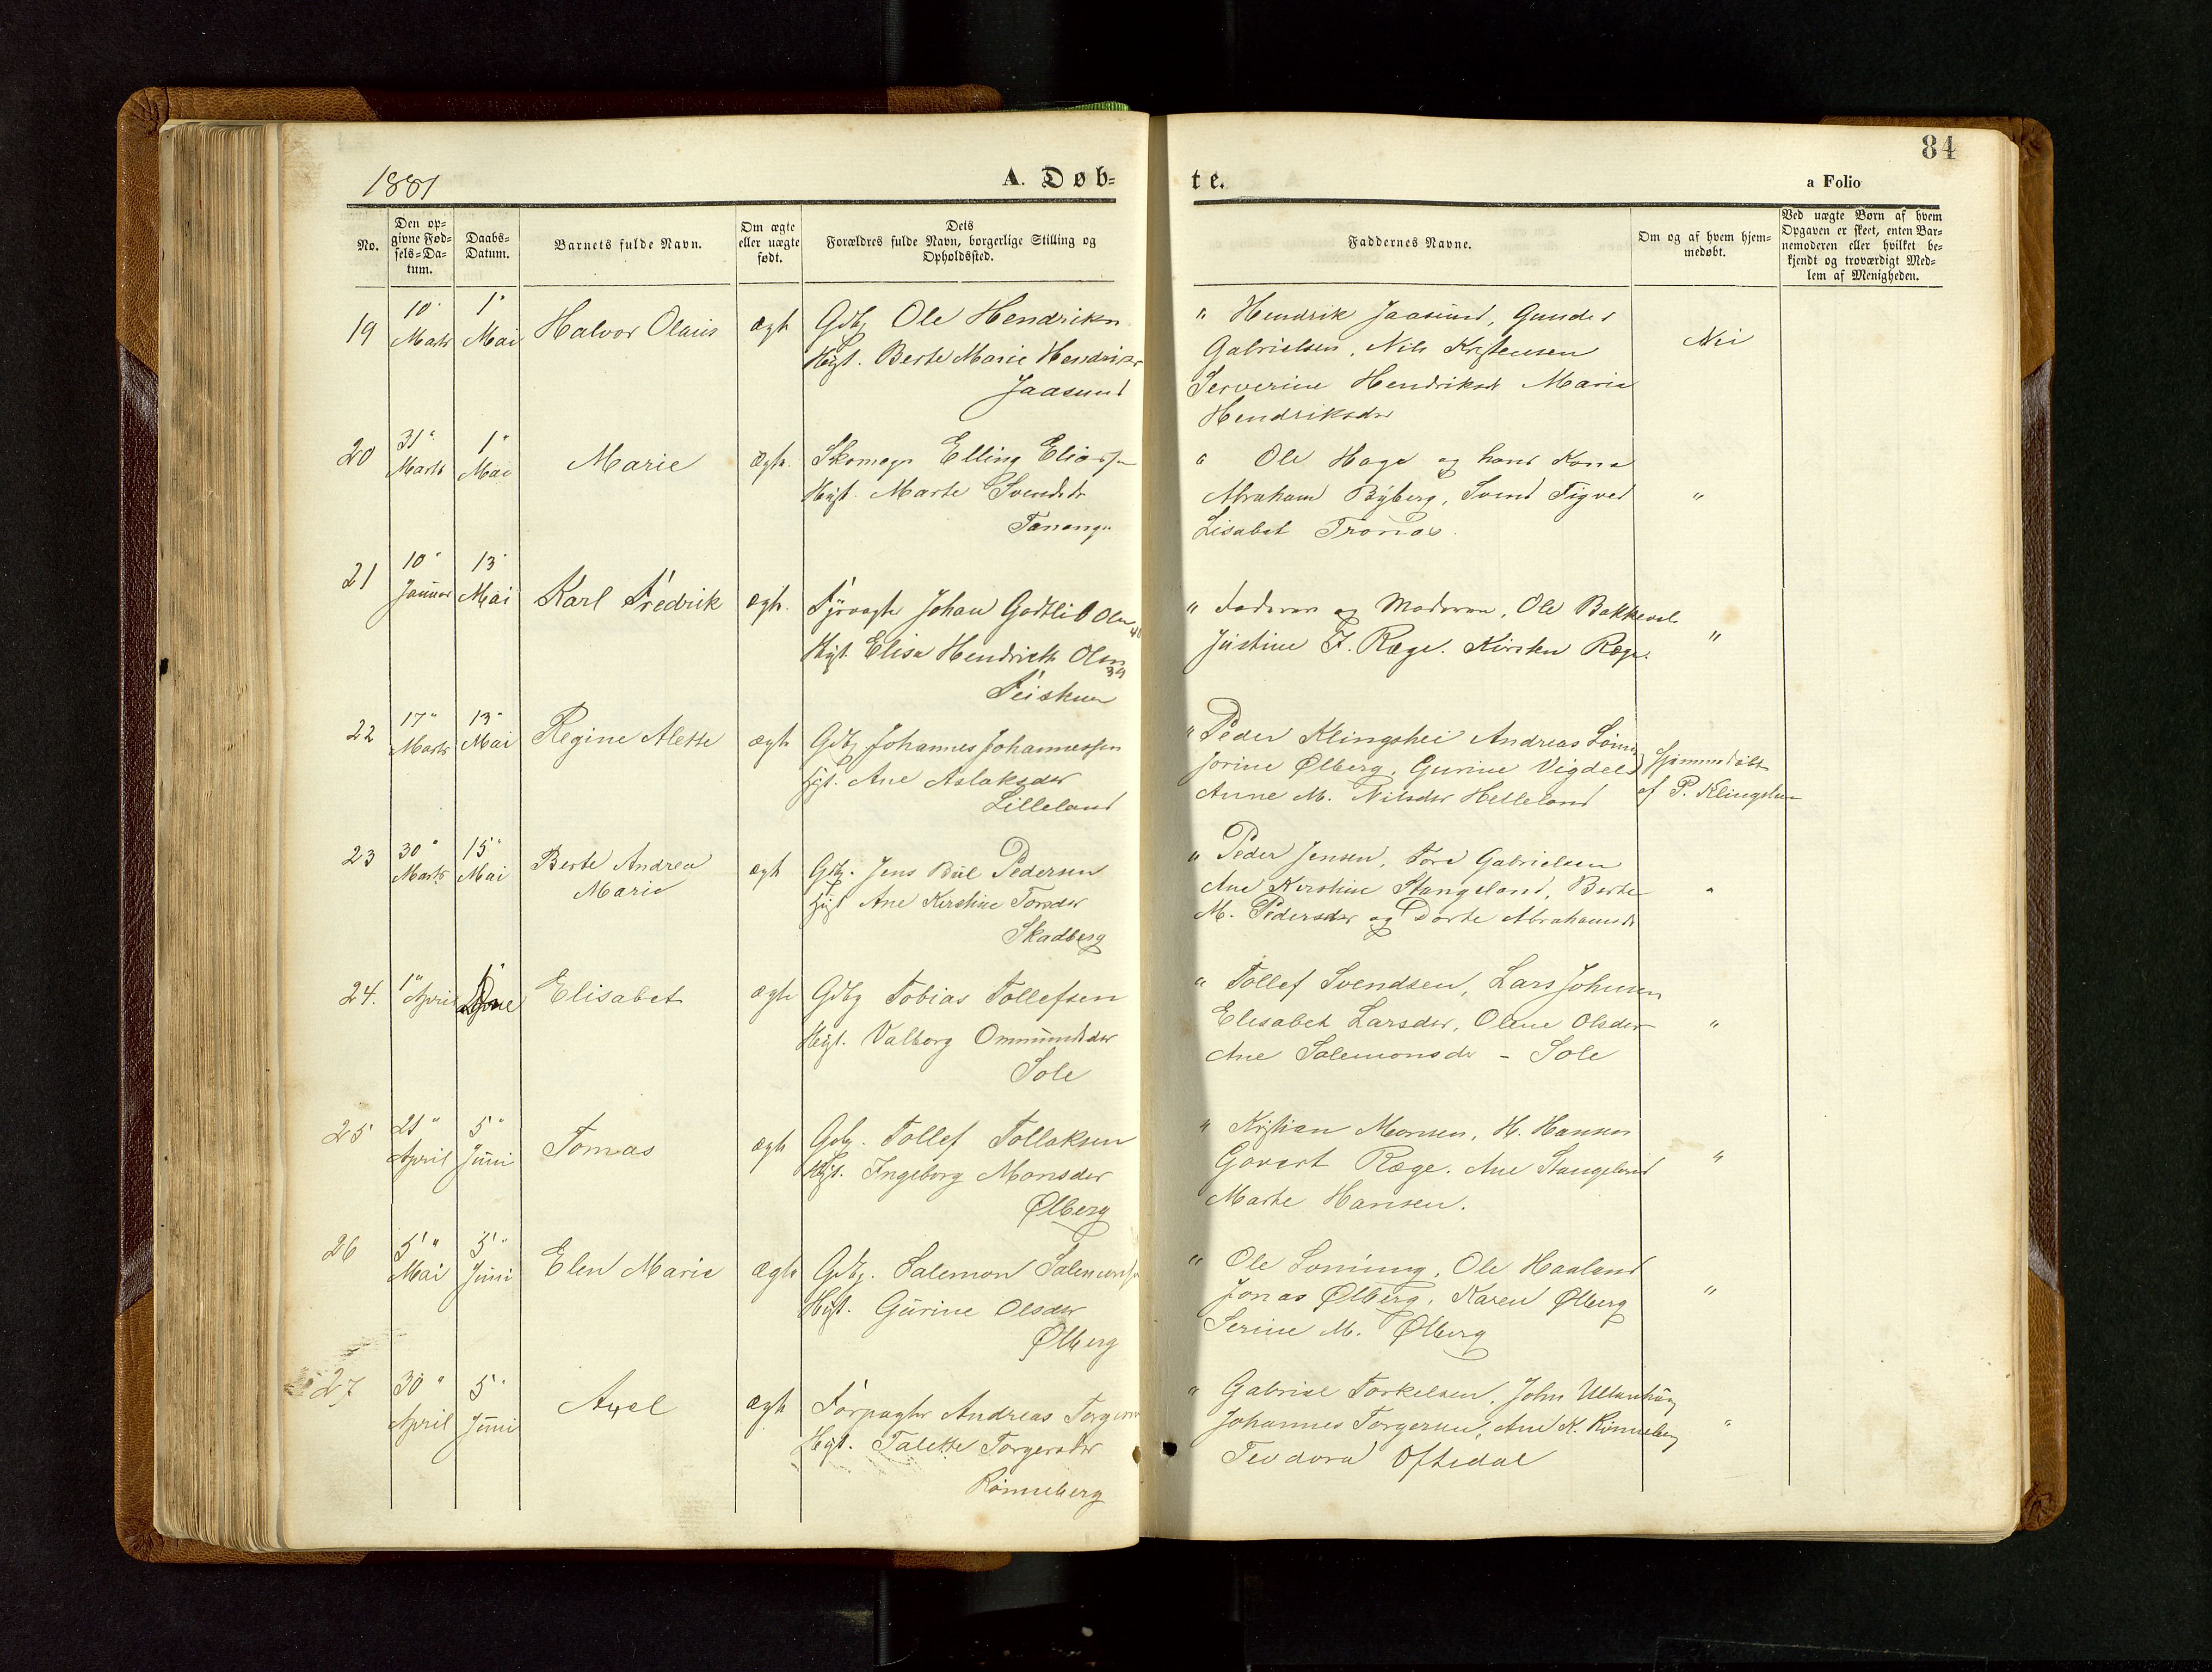 84
1881
A. Døb=
te.
a Folio
No.
Den op=
givne Fød=
sels=Da=
tum.
Daabs=
Datum.
Barnets fulde Navn.
Om ægte
eller uægte
født.
Dets
Forældres fulde Navn, borgerlige Stilling og
Opholdssted.
Faddernes Navne.
Om og af hvem hjem=
medøbt.
Ved uægte Børn af hvem
Opgaven er skeet, enten Bar=
nemoderen eller hvilket be=
kjendt og troværdigt Med=
lem af Menigheden.
19
10"
Marts
1"
Mai
Halvor Olaus
ægte
Gdbg Ole Hendriksn
Hgt. Berte Marie Hendriksd
Jaasund
" Hendrik Jaasund, Gunder
Gabrielsen, Nils Kristensen
Serverine Hendriksdr Marie
Hendriksdr
Nei
20
31"
Marts
1"
Mai
Marie
ægte
Skomager Elling Eliasen
Hgt. Marte Svendsdr
Tananger
" Ole Haga og hans Kone
Abraham Byberg, Svend Tigved
Lisabet Tronæs
"
21
10"
Januar
13"
Mai
Karl Fredrik
ægte
Fyrvogter Johan Gottlib Olsen
Hgt. Elisa Hendritte Olsen
39
Feisteen
" Faderen og Moderen, Ole Bakkevol
Justine F. Ræge. Kirsten Ræge.
"
22
17"
Marts
13"
Mai
Regine Alette
ægte
Gdbg Johannes Johannessen
Hgt. Ane Aslaksdr
Lilleland
" Peder Klingshei Andreas
Jorine Ølberg, Gurine Vigdel
Anne M. Nilsdr Helleland
Hjemmedøbt
af P. Klingshei
23
30"
Marts
15"
Mai
Berte Andrea
Marie
ægte
Gdbg. Jens Bul Pedersen
Hgt Ane Kirstine Torsdr
Skadberg
" Peder Jensen, Tore Gabrielsen
Ane Kirstine Stangeland, Berte
M. Pedersdr og Dorte Abrahamsdr
"
24.
1"
April
Elisabet
ægte
Gdbg Tobias Tollefsen
Hgt. Valborg Ommundsdr
Sole
" Tollef Svendsen, Lars Johnsen
Elisabet Larsdr, Oline Olsdr
Ane Salemonsdr - Sole
"
25
21"
April
5"
Juni
Tomas
ægte
Gdbg. Tollef Tollaksen
Hgt. Ingeborg Monsdr
Ølberg
" Kristian Monsen, H. Hansen
Govert Ræge. Ane Stangeland
Marte Hansen.
"
26
5"
Mai
5"
Juni
Elen Marie
ægte
Gdbg. Salemon Salemonsen
Hgt. Gurine Olsdr
Ølberg
" Ole Sømme, Ole Haaland
Jonas Ølberg, Karen Ølberg
Serine M. Ølberg
"
27
30"
April
5"
Juni
Axel
ægte
Forpagter Andreas Torgersen
Hgt. Talette Torgersdr
Rønneberg
" Gabriel Torkelsen, John Ullenhaug
Johannes Torgersen, Ane K. Rønneberg
Teodora Oftedal
"